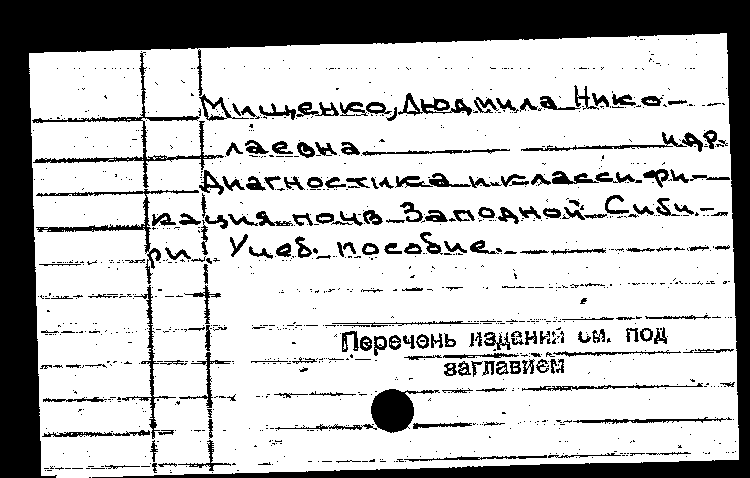 Мищенко, Людмила Нико-
лаевна и др.
Диагностика и классифи-
кация почв Западной Сиби-
ри. Учеб. пособие.
Перечень изданий см. под
заглавием